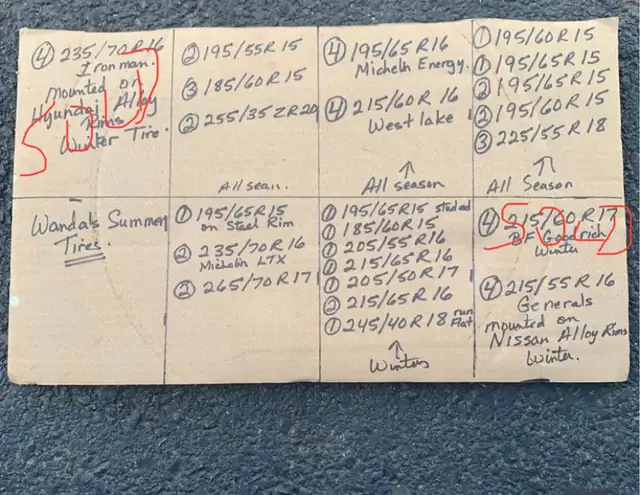 ④ 235/70R16
Ironman.
mounted on
Hyundai Alloy
Rims
Winter Tire.
SOLD
② 195/55R 15
③ 185/60R 15
② 255/35ZR20
All sean.
④ 195/65R16
Michelin Energy.
④ 215/60R 16
Westlake
↑
All season
① 195/60R15
① 195/65R15
② 195/65R15
② 195/60R 15
③ 225/55R 18
↑
All Season
Wanda's Summer
Tires.
① 195/65R15
on Steel Rim
② 235/70R 16
Michelin LTX
② 265/70R17
① 195/65R15 studed
① 185/60R15
① 205/55R16
① 215/65R16
① 205/50R17
② 215/65R 16
① 245/40R18 run
Flat
↑
Winters
④ 215/60R17
BF Goodrich
Winter
SOLD
④ 215/55R16
Generals
mounted on
Nissan Alloy Rims
Winter.